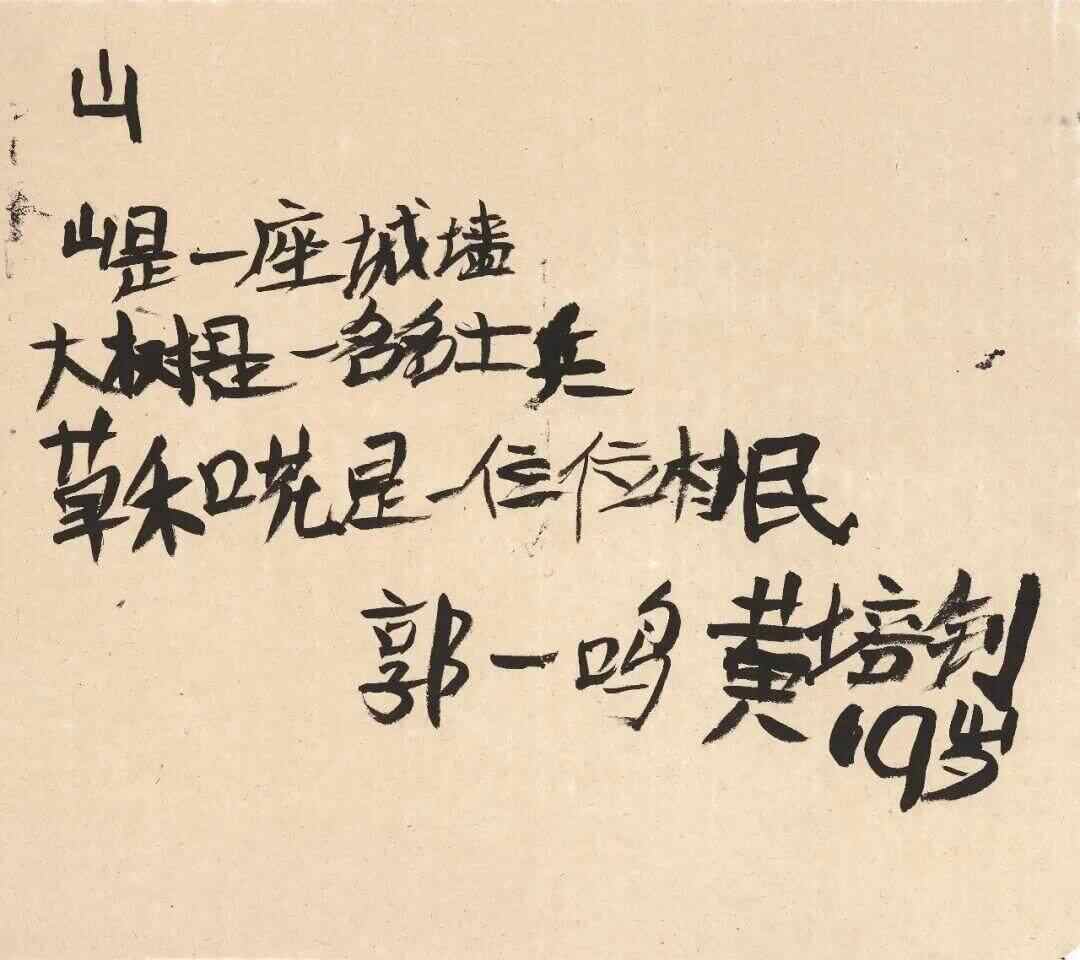 山
山是一座城墙
大树是一名名士兵
草和花是一位位村民
郭一鸣 黄培钊 9岁